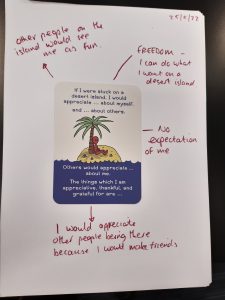 25/5/22
other people on the
island would see
me as fun.
FREEDOM -
I can do what
I want on a
desert island
If I were stuck on a
desert island, I would
appreciate ... about myself,
and ... about others.
No
expectation
of me
Others would appreciate ...
about me.
The things which I am
appreciative, thankful, and
grateful for are ...
I would appreciate
other people being there
because I would make friends